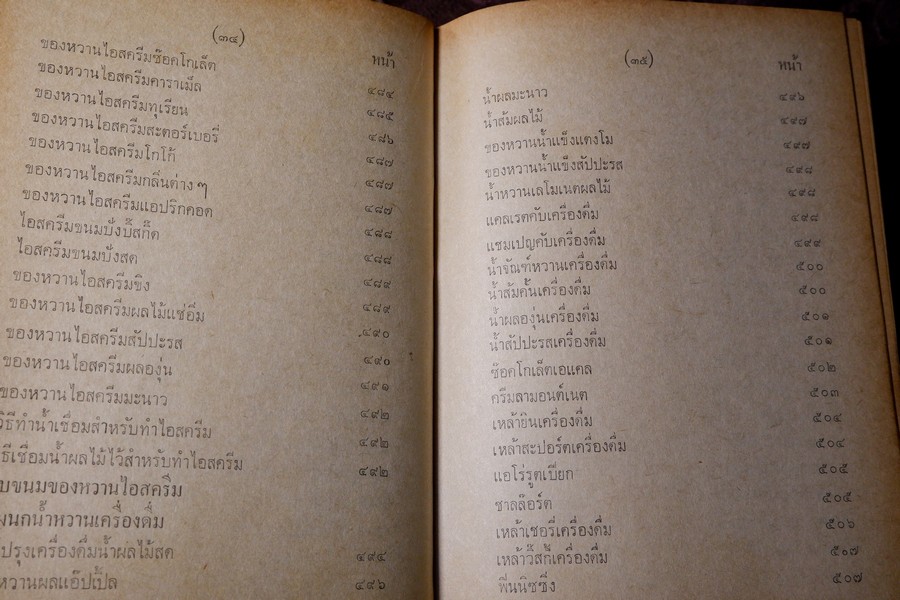 (๓๔)
หน้า
ของหวานไอสครีมช๊อคโกเล็ต ๔๘๔
ของหวานไอสครีมคาราเม็ล ๔๘๕
ของหวานไอสครีมทุเรียน ๔๘๖
ของหวานไอสครีมสะตอร์เบอรี่ ๔๘๗
ของหวานไอสครีมโกโก้ ๔๘๗
ของหวานไอสครีมกลิ่นต่าง ๆ ๔๘๗
ของหวานไอสครีมแอปริกคอด ๔๘๘
ไอสครีมขนมปังบิ๊สกิ๊ต ๔๘๘
ไอสครีมขนมปังสด ๔๘๙
ของหวานไอสครีมขิง ๔๘๙
ของหวานไอสครีมผลไม้แช่อิ่ม ๔๙๐
ของหวานไอสครีมสัปปะรส ๔๙๐
ของหวานไอสครีมผลองุ่น ๔๙๑
ของหวานไอสครีมมะนาว ๔๙๒
วิธีทำน้ำเชื่อมสำหรับทำไอสครีม ๔๙๒
ธีเชื่อมน้ำผลไม้ไว้สำหรับทำไอสครีม ๔๙๒
บขนมของหวานไอสครีม
ผนกน้ำหวานเครื่องดื่ม
ปรุงเครื่องดื่มน้ำผลไม้สด ๔๙๔
หวานผลแอ๊ปเปิ้ล ๔๙๖
(๓๕)
หน้า
น้ำผลมะนาว ๔๙๖
น้ำส้มผลไม้ ๔๙๗
ของหวานน้ำแข็งแตงโม ๔๙๗
ของหวานน้ำแข็งสัปปะรส ๔๙๘
น้ำหวานเลโมเนตผลไม้ ๔๙๘
แคลเรตคับเครื่องดื่ม ๔๙๘
แชมเปญคับเครื่องดื่ม ๔๙๙
น้ำจัณฑ์หวานเครื่องดื่ม ๕๐๐
น้ำส้มคั้นเครื่องดื่ม ๕๐๐
น้ำผลองุ่นเครื่องดื่ม ๕๐๑
น้ำสัปปะรสเครื่องดื่ม ๕๐๑
ช๊อคโกเล็ตเอแคล ๕๐๒
ครีมลามอนต์เนต ๕๐๓
เหล้ายินเครื่องดื่ม ๕๐๔
เหล้าสะปอร์ตเครื่องดื่ม ๕๐๔
แอโร่รูตเปียก ๕๐๕
ชาลล๊อร์ต ๕๐๕
เหล้าเชอรี่เครื่องดื่ม ๕๐๖
เหล้าวิ๊สกี้เครื่องดื่ม ๕๐๗
ฟีนนิซซึ่ง ๕๐๗